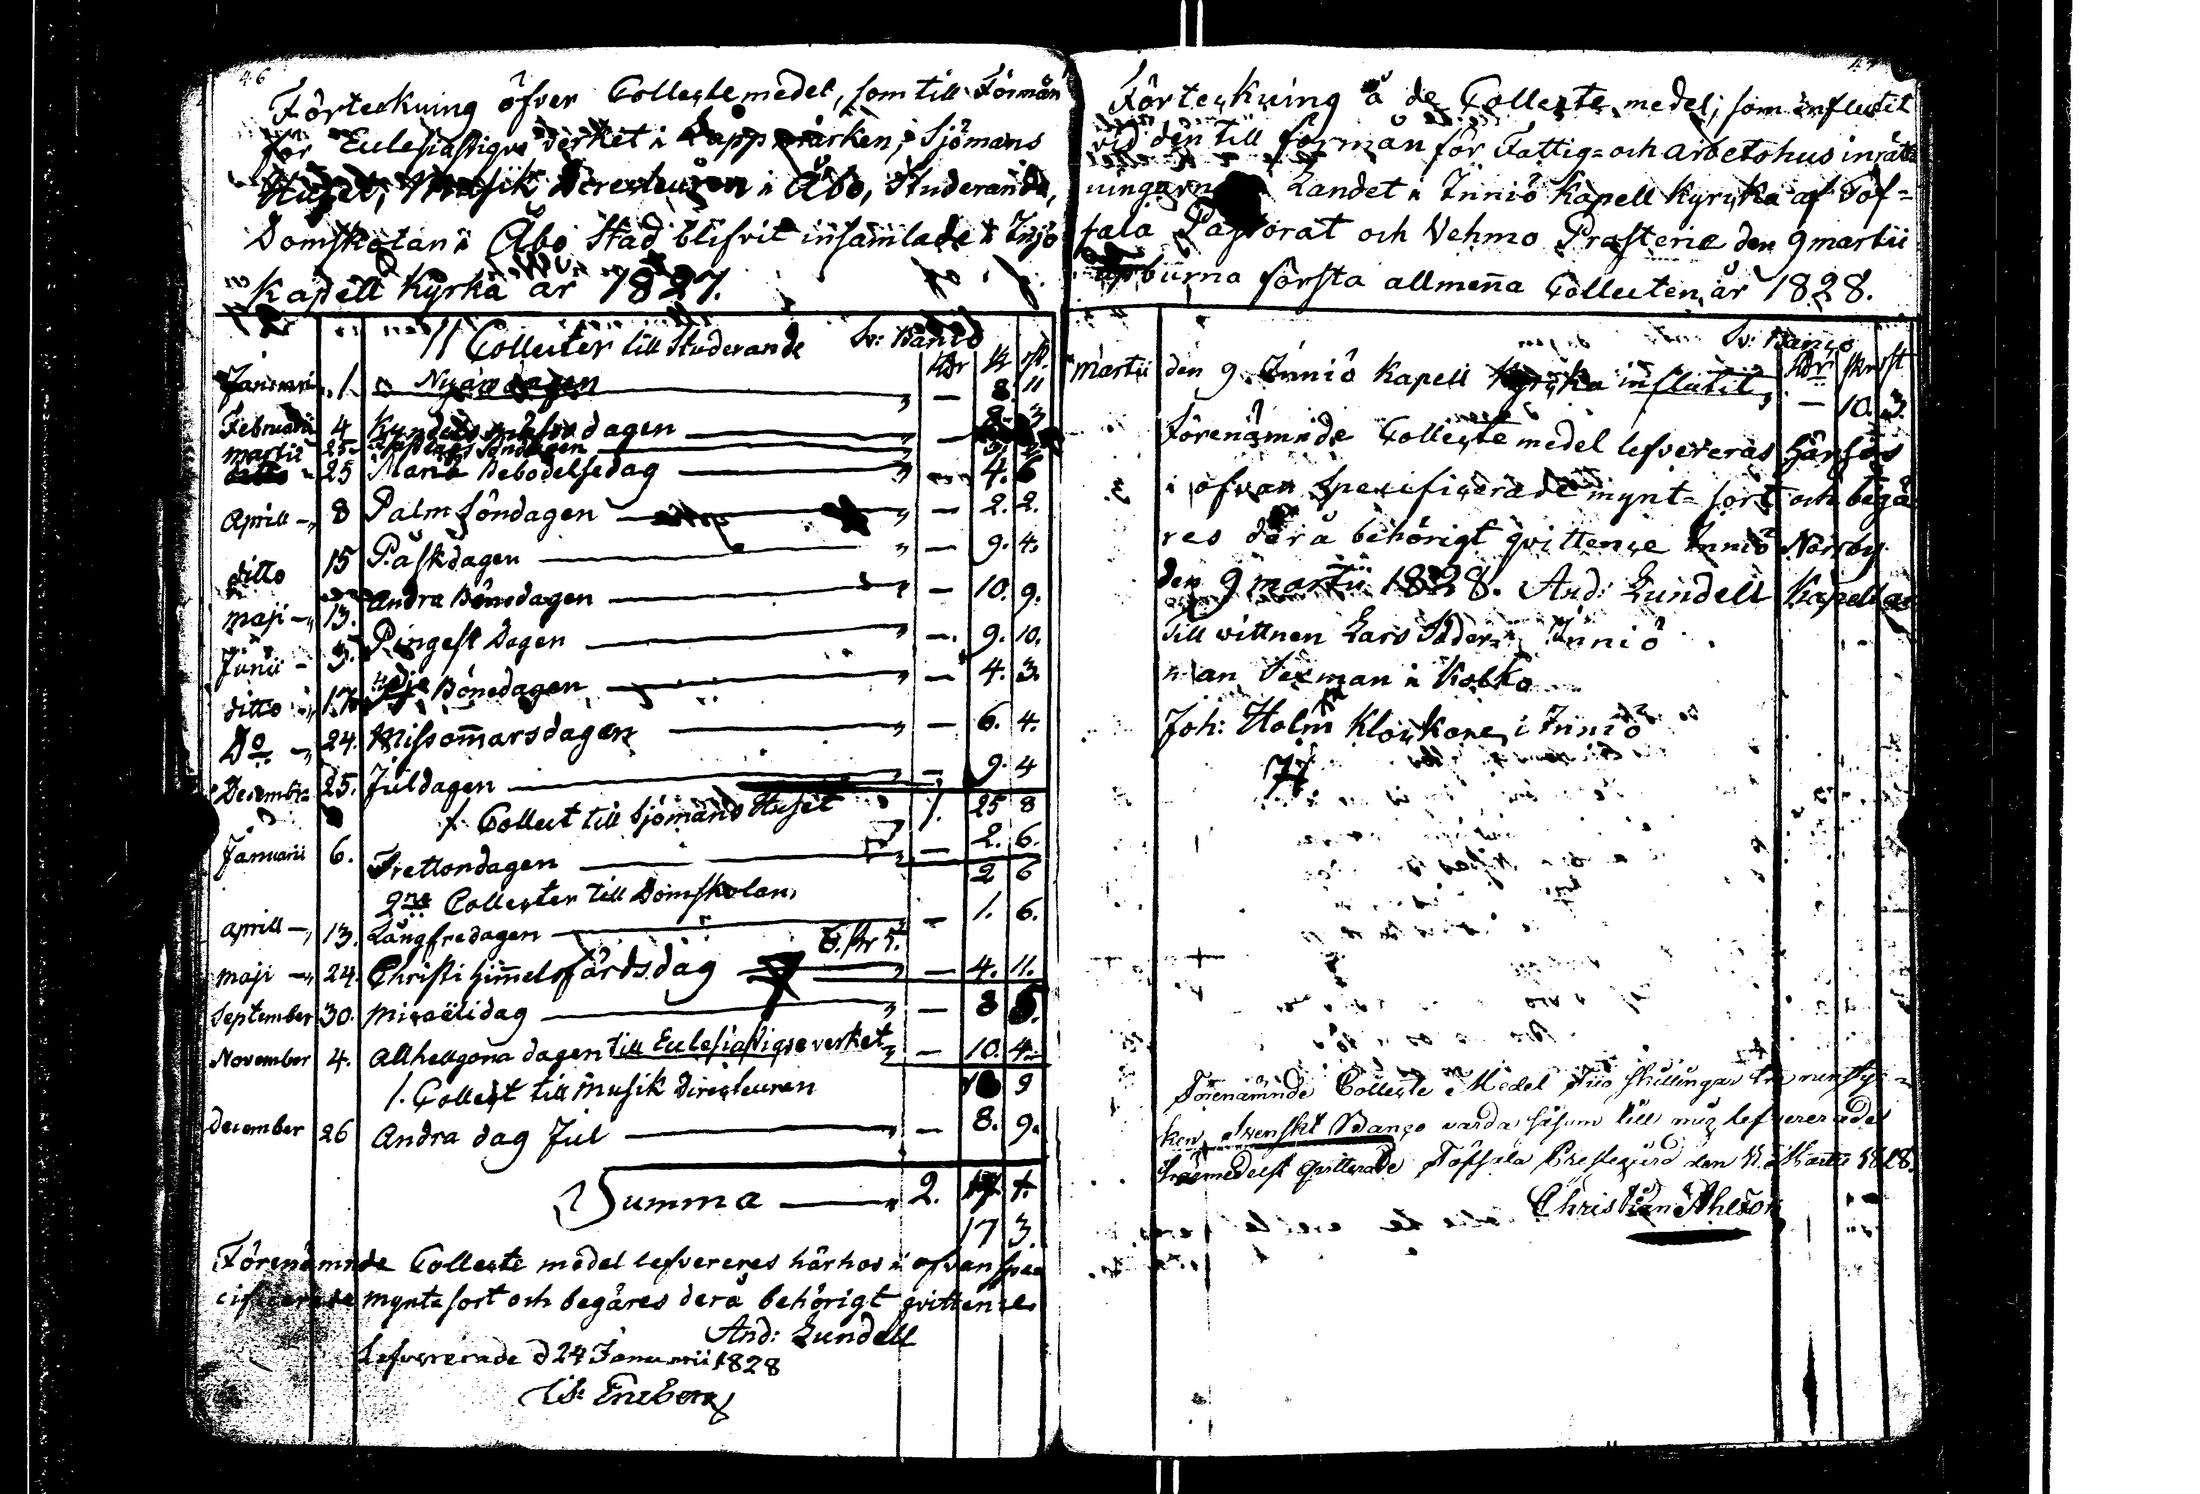 46
Förteckning öfver Collecte medel, som till Förmån
för Eclesiastique Verket i Lappmarken, Sjömans
Huset, Musik Direcleuren i Åbo, Studerande,
Domskolan i Åbo Stad blifvit insamlade i Injö
Kapell Kyrka år 1827.
11 Collecter till Studerande Sv: Banco
Rdr sk rst.
Januari 1. Nyårsdagen — 8. 11
Februarii 4 Kyndelsmässodagen — 8. 3
Martii 25
ditto 25 Mariæ Bebodelsedag — 4. 6
Aprill 8 Palm Söndagen — 2. 2.
ditto 15 Påskdagen — 9. 4.
Maji 13. Andra Bönedagen — 10. 9.
Junii 3. Pingest Dagen — 9. 10.
ditto 17. 3dje Bönedagen — 4. 3.
Do 24. Missommarsdagen — 6. 4.
Decembr 25. Juldagen — 9. 4
1. Collect till Sjömans Huset 1. 25 8
Januarii 6. Trettondagen — 2. 6.
2 6
2ne Collecter till Domskolan,
Aprill 13. Långfredagen — 1. 6.
Maji 24. Christi Himmelsfärdsdag — 4. 11.
September 30. Micaëlidag — 8
November 4. Allhellgona dagen till Eclesiastique verket — 10. 4
1. Collect till Musik Direcleuren 9
December 26 Andra dag Jul — 8. 9.
Summa — 2.
17 3.
Förenämnde Collecte medel lefvereres härhos i ofvan spec
cificerade mynte sort och begäres derå behörigt qvittence
And: Lundell
Lefvererade d 24 Januarii 1828
47
Förteckning å de Collecte medel, som influtit
vid den till förmån för Fattig= och arbetshus inrätt
ningarna Landet i Inniö Kapell Kyrcka af Töf=
sala Pastorat och Vehmo Prosterie den 9 martii
uppburna första allmena Collecten år 1828.
Sv: Banco
Rdr skr st
Martii den 9 Inniö Kapell Kyrcka influtit, — 10. 3.
Förenämnde Collecte medel lefvereras härhos
i ofvan specificerade mynt= sort och begä
res derå behörigt qvittence Inniö Norrby
den 9 martii 1828. And: Lundell Kapellan
Till vittnen Lars Söder Inniö
Sexman i Kolko
Joh: Holm Klockare i Inniö
Förenämnde Collecte Medel Tiio skillingar tre runsty=
ken Svenskt Banco varda såsom till mig lefvererade
härmedelst qvitterade Töfsala Prestegård den Martii 1828.
Christian Ahlson